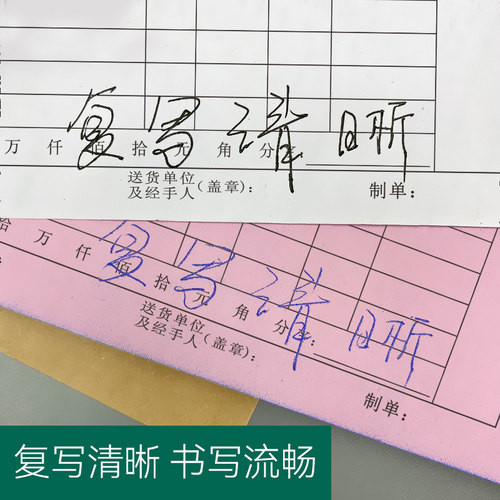 复写清晰
万 仟 佰 拾 元 角 分
送货单位
及经手人(盖章): 制单:
复写清晰
拾 万 仟 佰 拾 元 角 分
送货单位
及经手人(盖章): 制单:
复写清晰 书写流畅